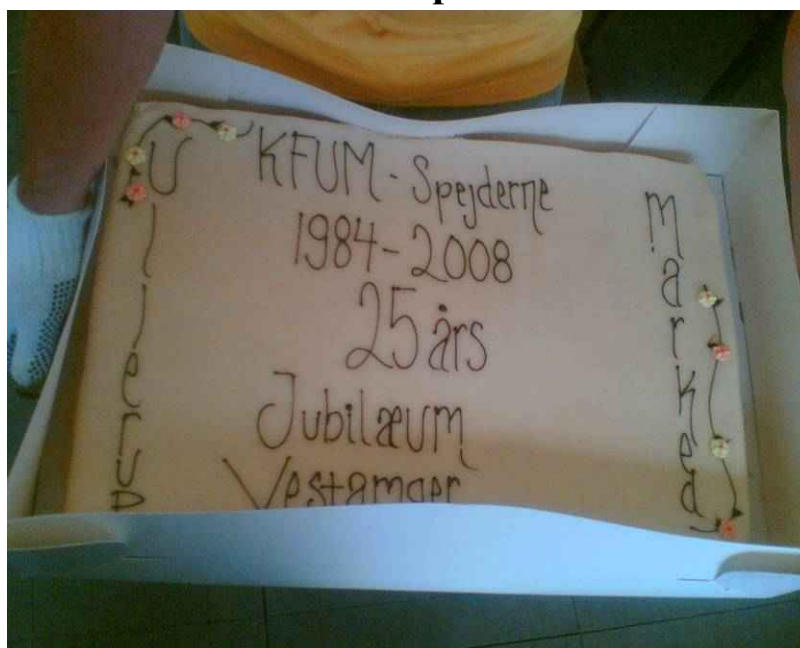 Ullerup
KFUM - Spejderne
1984-2008
25 års
Jubilæum
Vestamager
Marked